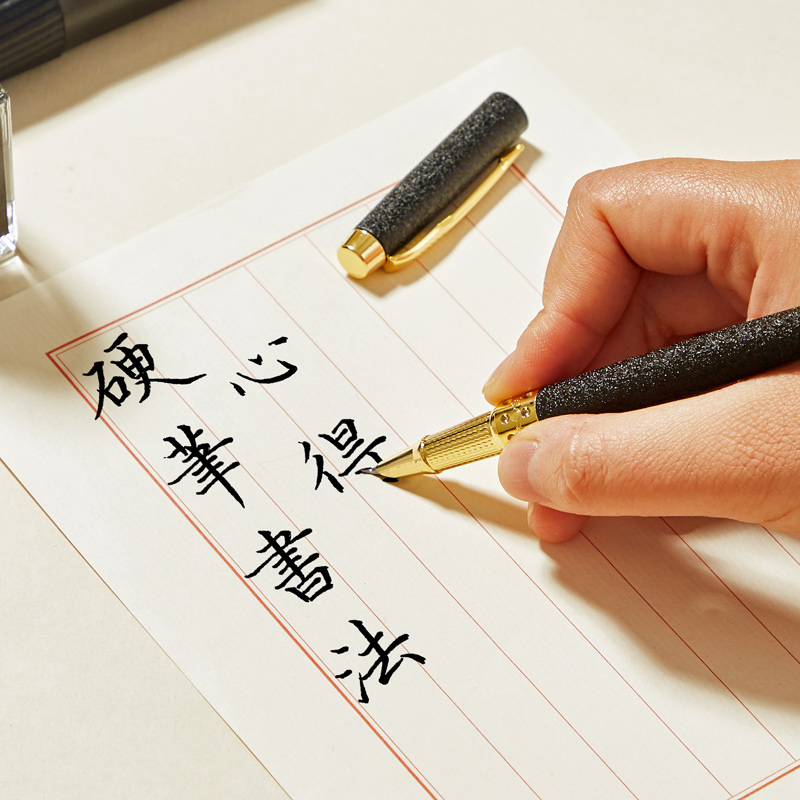 硬筆書法
心得